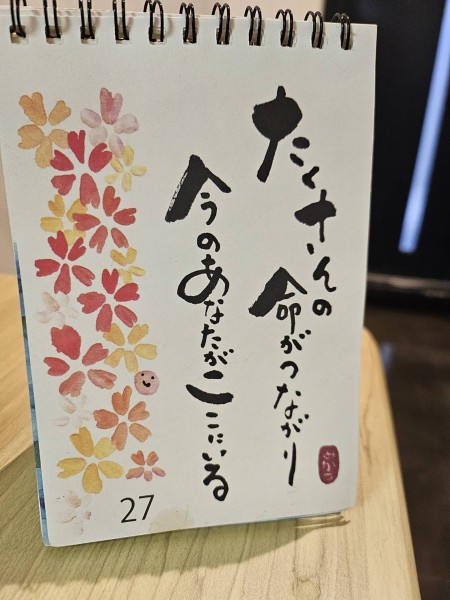 たくさんの
命がつながり
今のあなたが
ここにいる
27